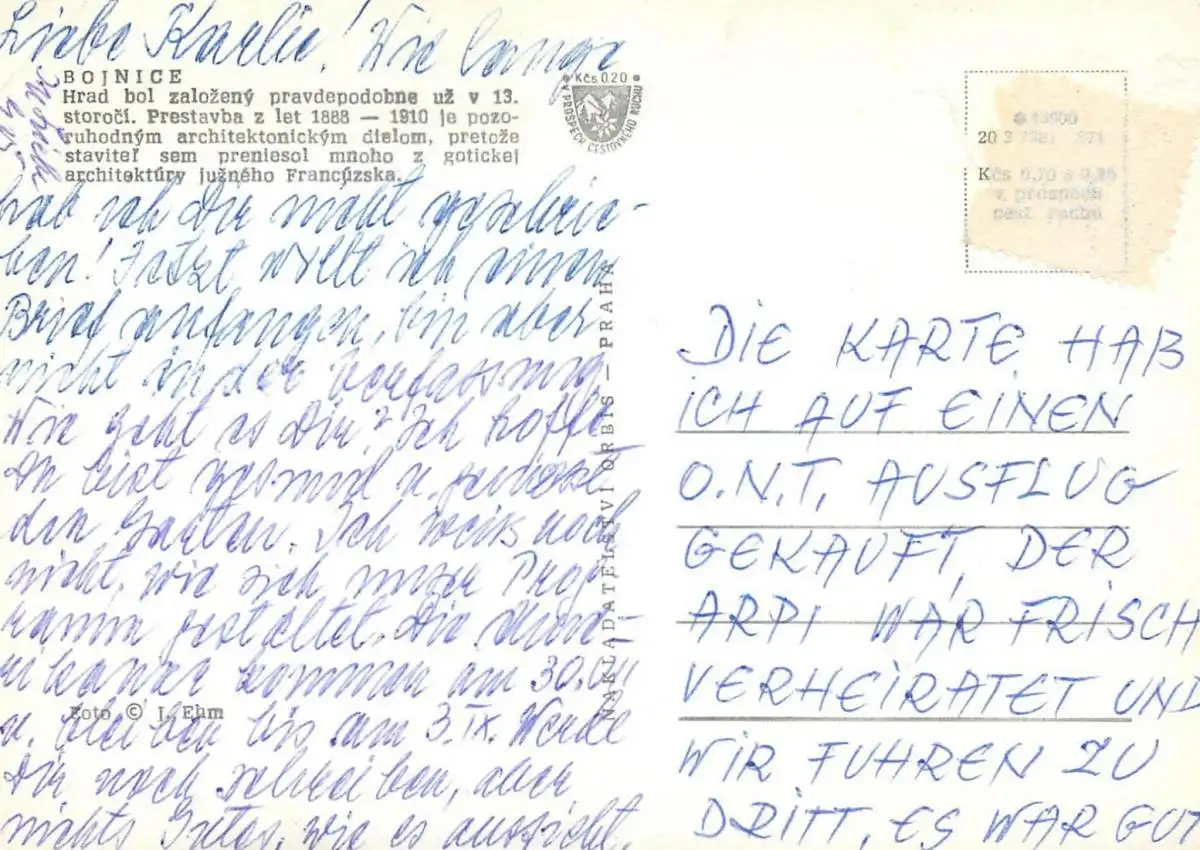 Liebe Karlie! Wie lange
BOJNICE
Hrad bol založený pravdepodobne už v 13.
storočí. Prestavba z let 1888 — 1910 je pozo-
ruhodným architektonickým dielom, pretože
staviteľ sem preniesol mnoho z gotickej
architektúry južného Francúzska.
hab ich Dir nicht geschrie-
ben! Jetzt wollt ich einen
Brief anfangen, bin aber
nicht in der Verfassung.
Wie geht es Dir? Ich hoffe
Du bist gesund u. genießt
den Garten. Ich weiss noch
nicht, wie sich unser Prog-
ramm gestaltet. Die
kommen am 30.
u. bleiben bis am 3.IX. Werde
Dir noch schreiben, aber
nichts Gutes, wie es aussieht.
Foto © J. Ehm
Kčs 0,20
V PROSPECH CESTOVNÉHO RUCHU
NAKLADATELSTVÍ ORBIS — PRAHA
20 3
Kčs 0,70 + 0,20
v prospech
cest. ruchu
DIE KARTE HAB
ICH AUF EINEN
O.N.T. AUSFLUG
GEKAUFT, DER
ARPI WAR FRISCH
VERHEIRATET UND
WIR FUHREN ZU
DRITT, ES WAR GUT